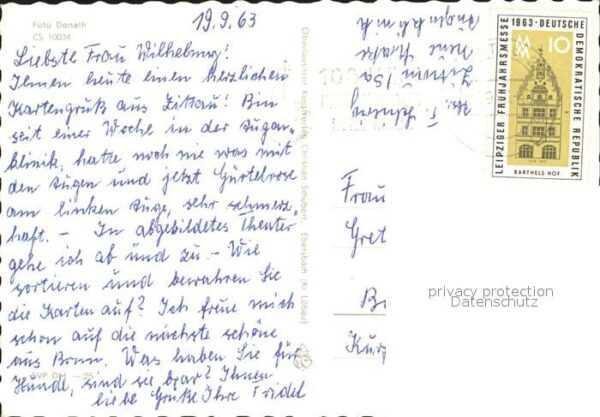 Foto Donath
CS 10034
19.9.63
Liebste Frau Wilhelmy!
Ihnen heute einen herzlichen
Kartengruß aus Zittau! Bin
seit einer Woche in der Augen-
klinik, hatte noch nie was mit
den Augen und jetzt Gürtelrose
am linken Auge, sehr schmerz-
haft. – In abgebildetes Theater
gehe ich ab und zu. – Wie
sortieren und bewahren Sie
die Karten auf? Ich freue mich
schon auf die nächste schöne
aus Bonn. Was haben Sie für
Hund, sind sie brav? Ihnen
liebe Grüße Ihre Friedel
EVP DM –.25
Oberlausitzer Kunstverlag Christian Schubert, Ebersbach (Kr. Löbau)
Abs. F.
Zittau/Sa
Neue Straße
Augenklinik
LEIPZIGER FRÜHJAHRSMESSE
1963 · DEUTSCHE
DEMOKRATISCHE REPUBLIK
MM
10
BARTHELS HOF
Frau
Gret
B
Kur
privacy protection
Datenschutz